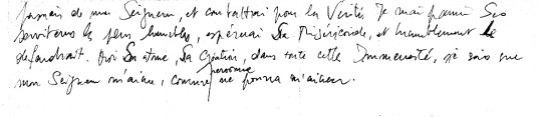 jamais de mon Seigneur, et combattrai pour la Vérité. Je serai parmi Ses
serviteurs les plus humbles, espérerai Sa Miséricorde, et humblement le
défendrait. Moi Sa chose, Sa Création, dans toute cette Immensité, je sais que
mon Seigneur m'aime, comme personne ne pourra m'aimer.